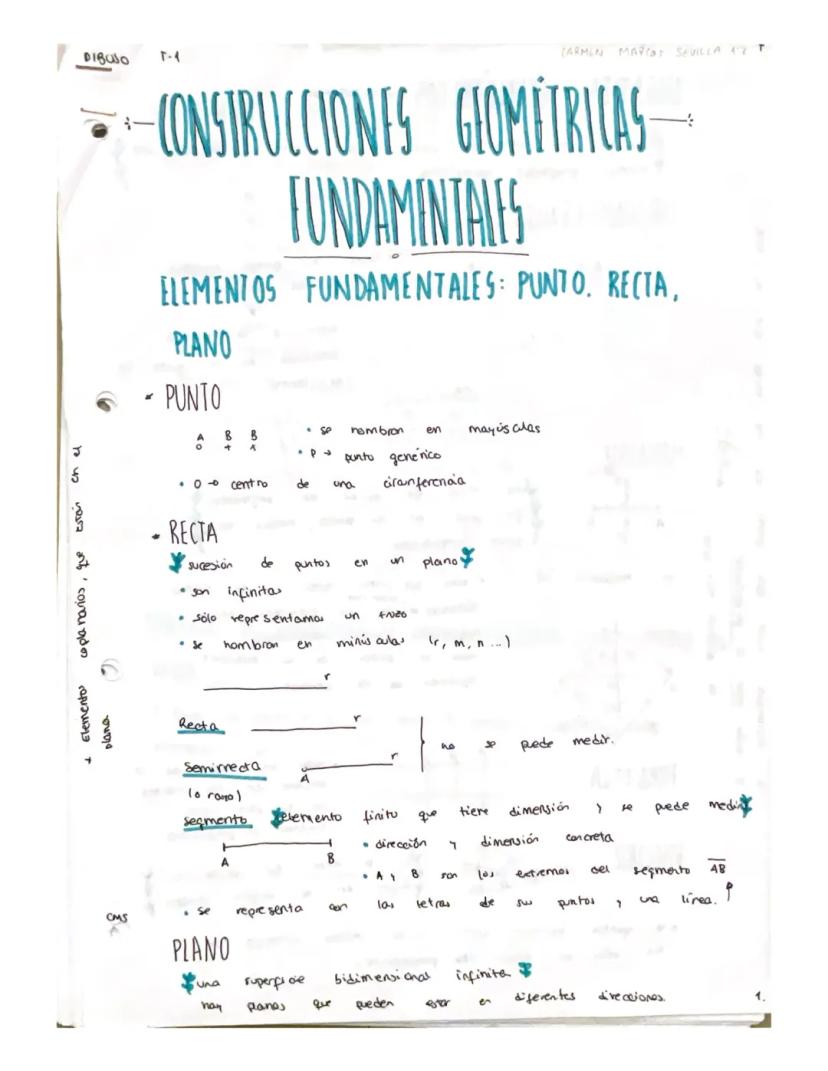 DIBUJO T-1
CARMEN MARCOS SEVILLA 1º
CONSTRUCCIONES GEOMÉTRICAS
FUNDAMENTALES
ELEMENTOS FUNDAMENTALES: PUNTO. RECTA,
PLANO
PUNTO
A B B
• se nombran en mayúsculas
• P → punto genérico
• O → centro de una circunferencia
RECTA
sucesión de puntos en un plano
• son infinitas
• sólo representamos un trozo
• se nombran en minúsculas (r, m, n ...)
r
Recta r
no se puede medir.
Semirrecta r
A
(o rayo)
segmento elemento finito que tiene dimensión y se puede medir
A B
• dirección y dimensión concreta
• A y B son los extremos del segmento AB
• se representa con las letras de sus puntos y una línea.
PLANO
una superficie bidimensional infinita
hay planos que pueden estar en diferentes direcciones.
1.
+ Elementos coplanarios, que están en el
plano.
CMS